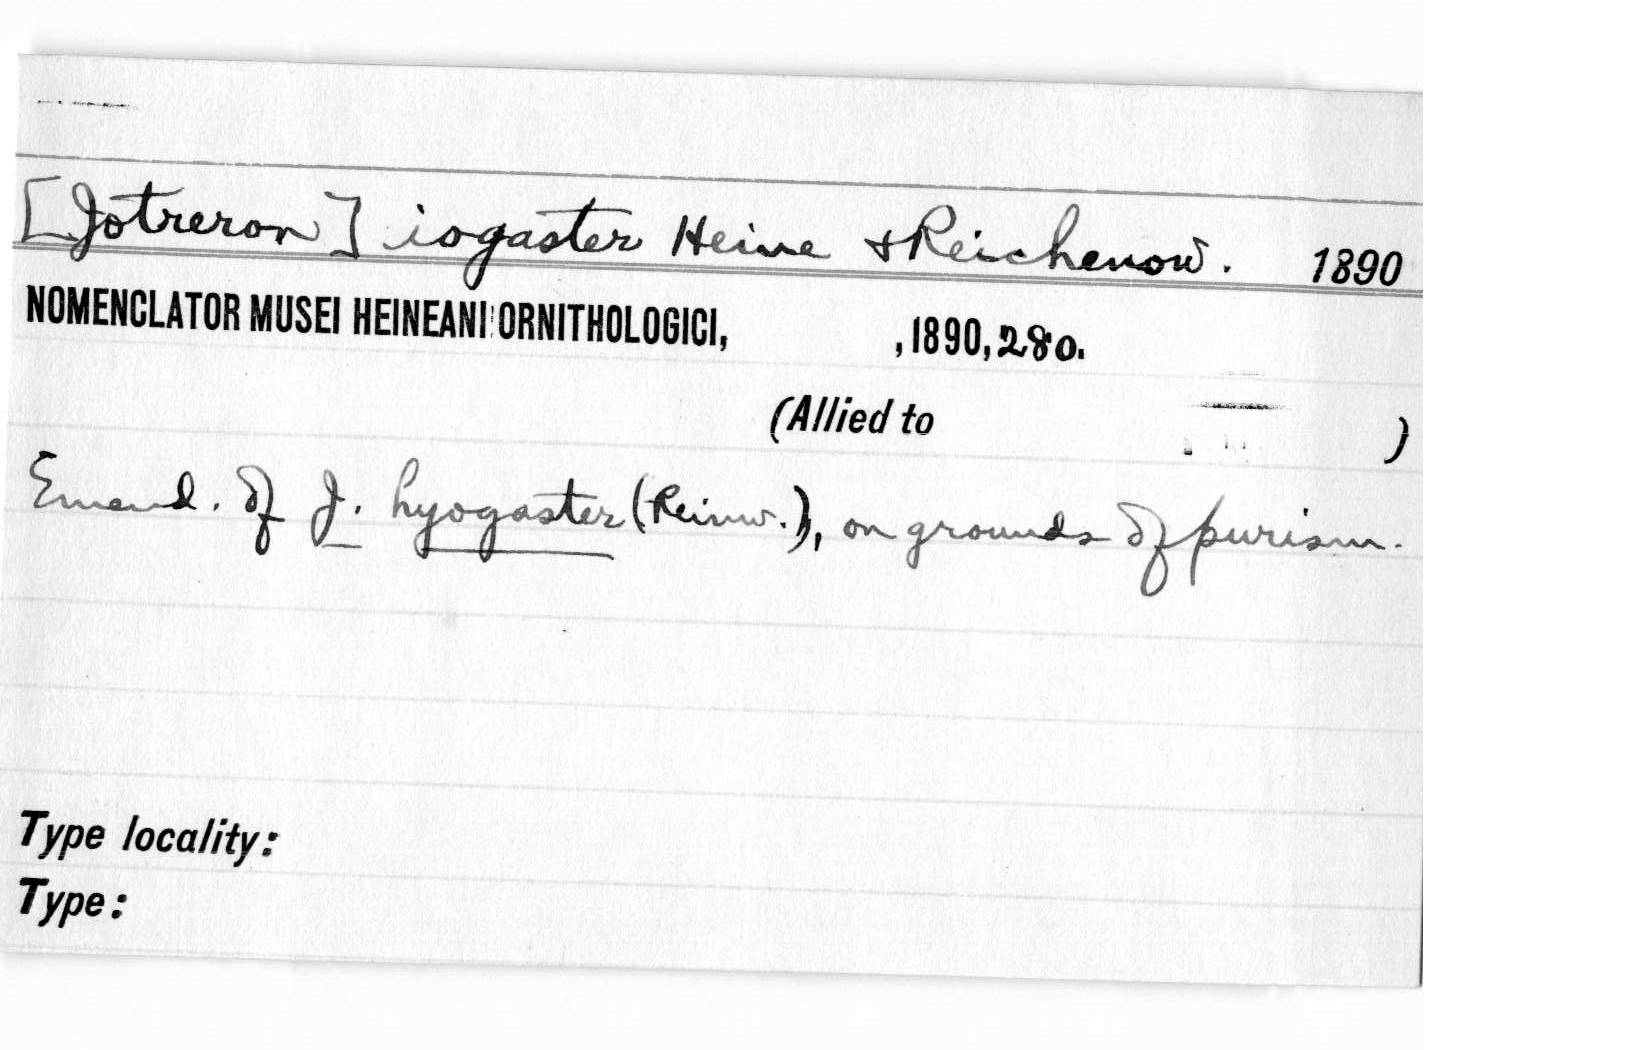 [Jotreron] iogaster Heine & Reichenow. 1890
NOMENCLATOR MUSEI HEINEANI ORNITHOLOGICI, , 1890, 280.
(Allied to )
Emend. of J. hyogaster (Reinw.), on grounds of purism.
Type locality:
Type: